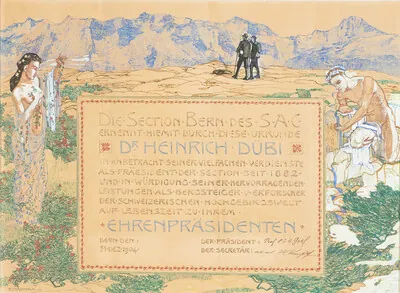 DIE SECTION BERN DES S.A.C
ERNENNT HIEMIT DURCH DIESE URKUNDE
DR HEINRICH DÜBI
IN ANBETRACHT SEINER VIELFACHEN VERDIENSTE
ALS PRAESIDENT DER SECTION SEIT 1882
UND IN WÜRDIGUNG SEINER HERVORRAGENDEN
LEISTUNGEN ALS BERGSTEIGER U. ERFORSCHER
DER SCHWEIZERISCHEN HOCHGEBIRGSWELT
AUF LEBENSZEIT ZU IHREM
EHRENPRÄSIDENTEN
BERN DEN: DER PRÄSIDENT:
DER SECRETÄR: